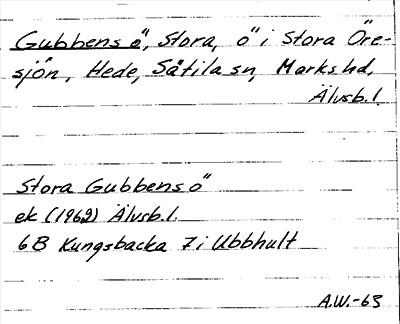 Gubbens ö, Stora, ö i Stora Öre-
sjön, Hede, Sätila sn, Marks hd,
Älvsb.l.
Stora Gubbens ö
ek (1962) Älvsb.l.
6B Kungsbacka 7i Ubbhult
A.W.-63